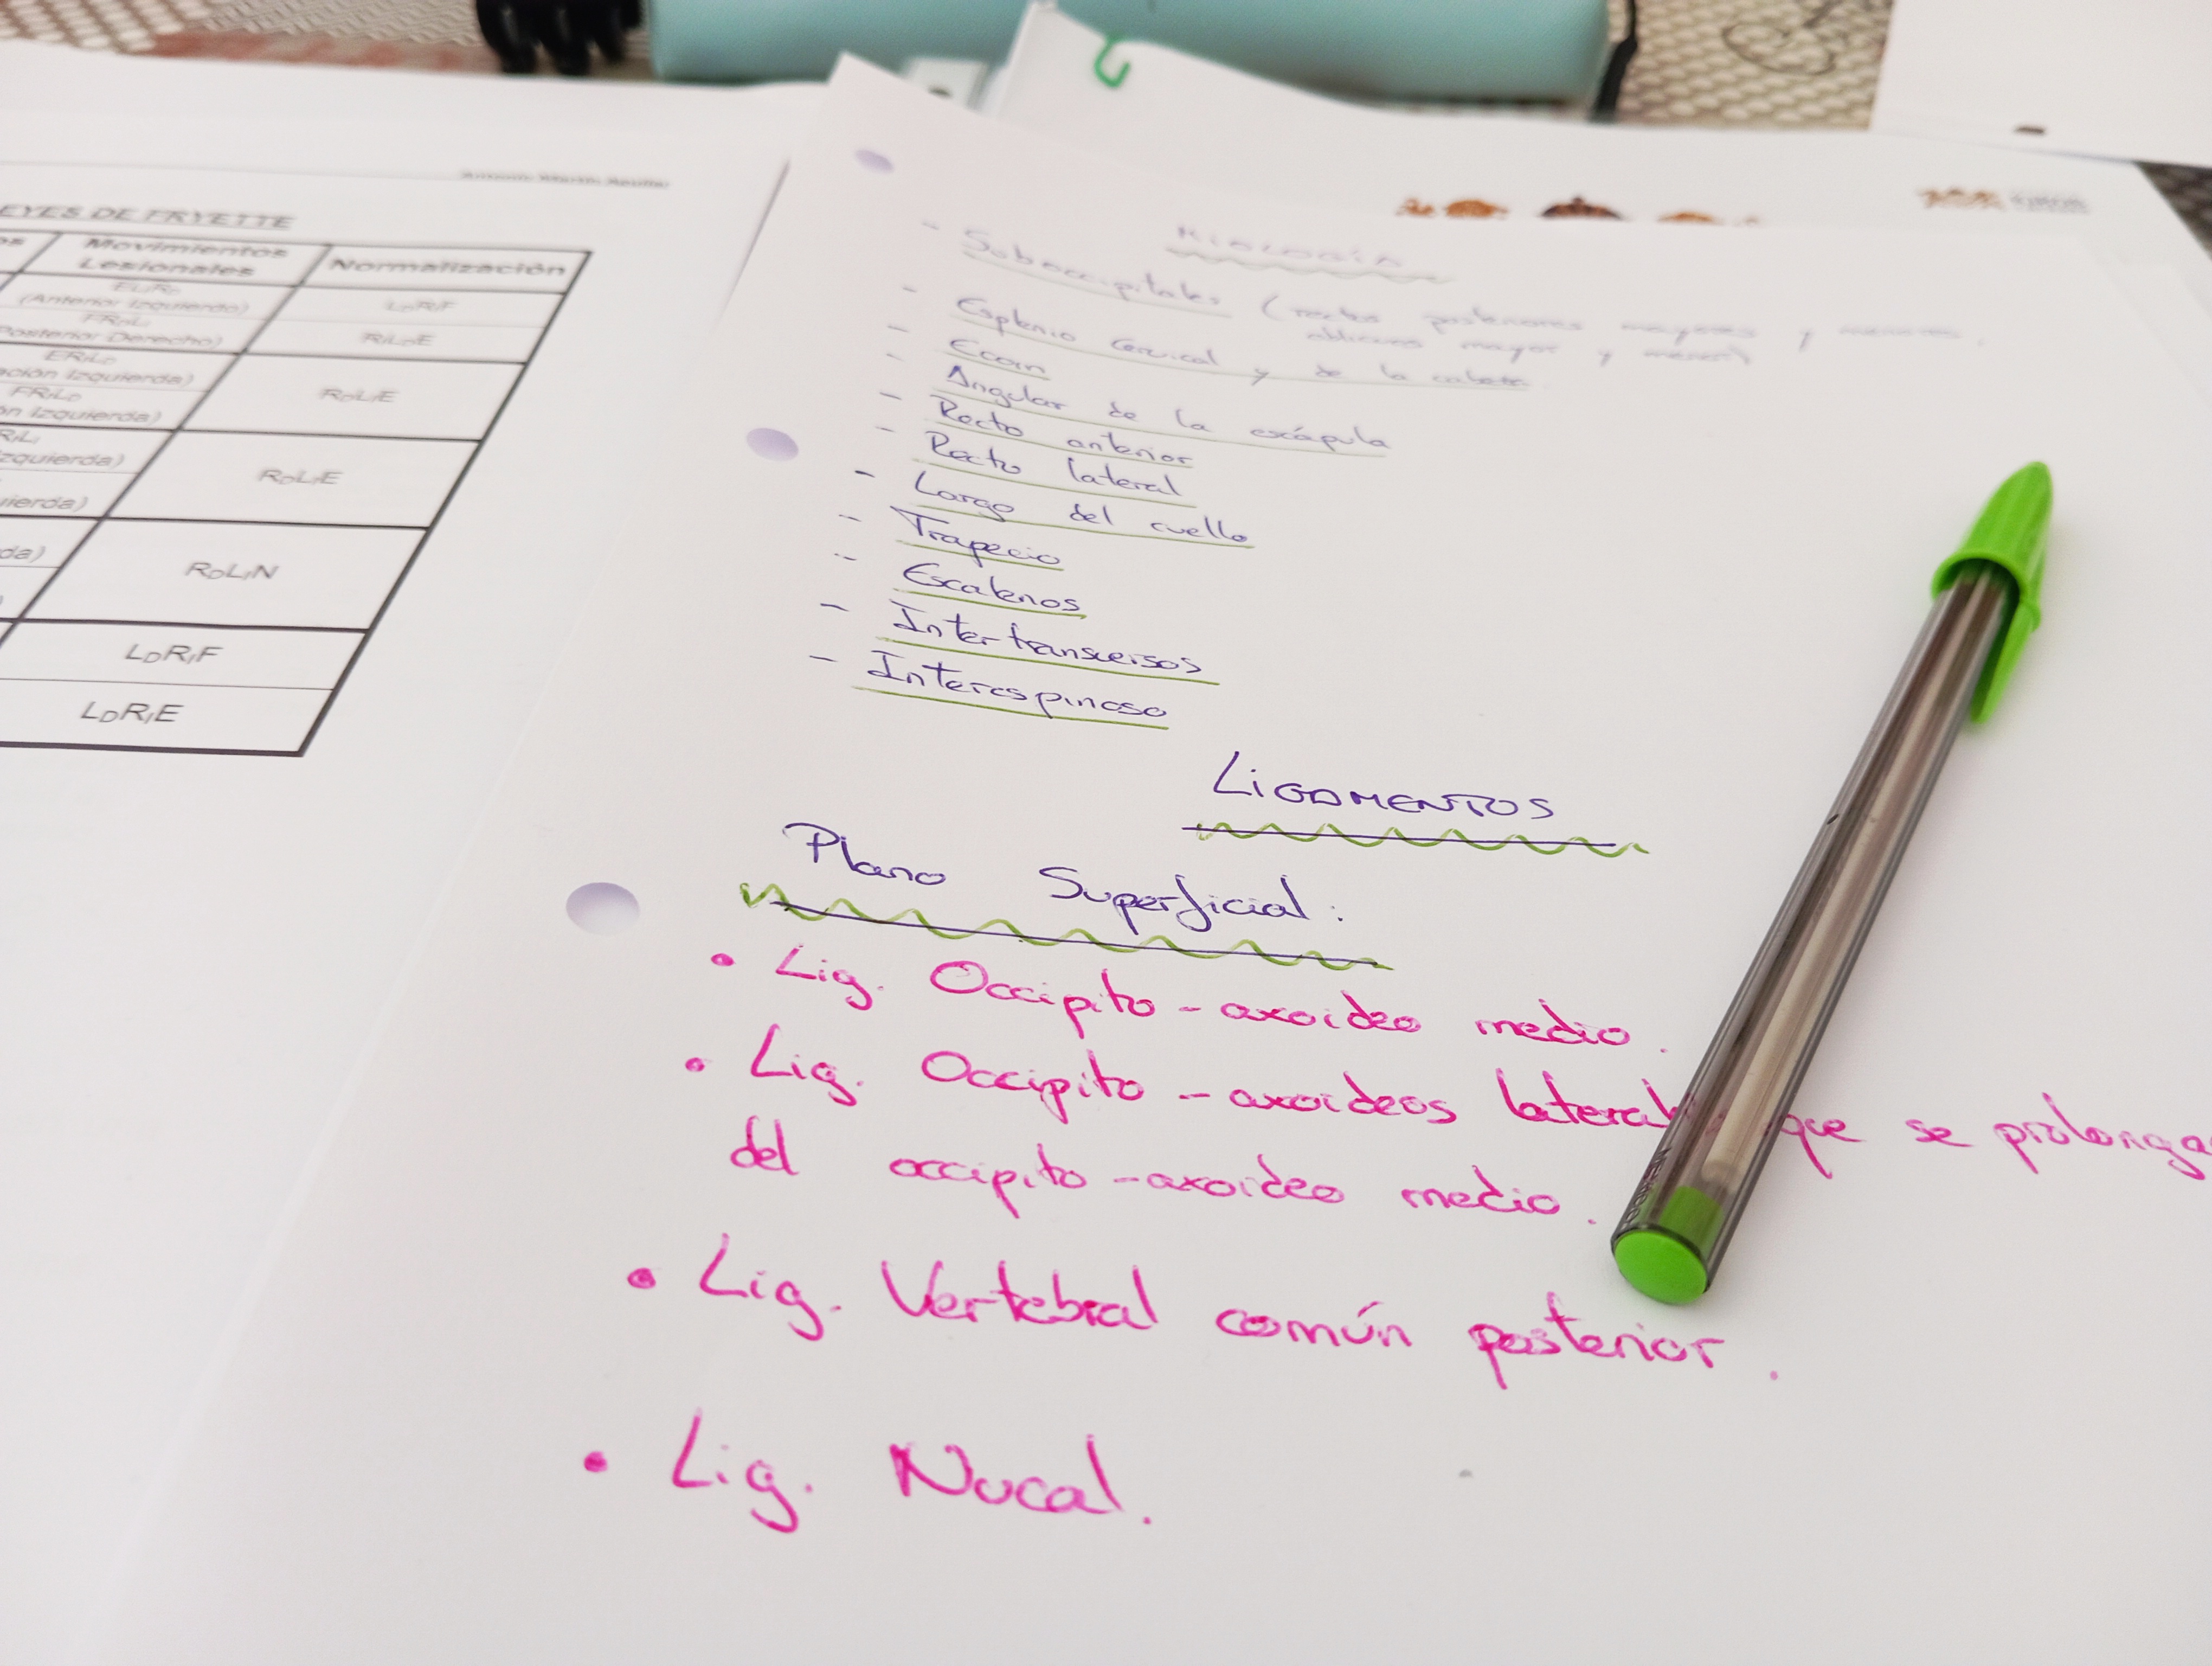 LEYES DE FRYETTE
Movimientos Lesionales
Normalización
(Anterior Izquierdo)
LDRIF
Posterior Derecho)
RILDE
ERILD
ación Izquierda)
RDLIE
FRILD
ón Izquierda)
RILI
zquierda)
RDLIE
uierda)
da)
RDLIN
LDRIF
LDRIE
MIOLOGÍA
- Suboccipitales (rectos posteriores mayores y menores,
oblicuos mayor y menor)
- Esplenio cervical y de la cabeza.
- Ecom
- Angular de la escápula
- Recto anterior
- Recto lateral
- Largo del cuello
- Trapecio
- Escalenos
- Intertransversos
- Interespinoso
LIGAMENTOS
Plano Superficial:
• Lig. Occipito-axoideo medio.
• Lig. Occipito-axoideos lateral que se prolonga
del occipito-axoideo medio.
• Lig. Vertebral común posterior.
• Lig. Nucal.